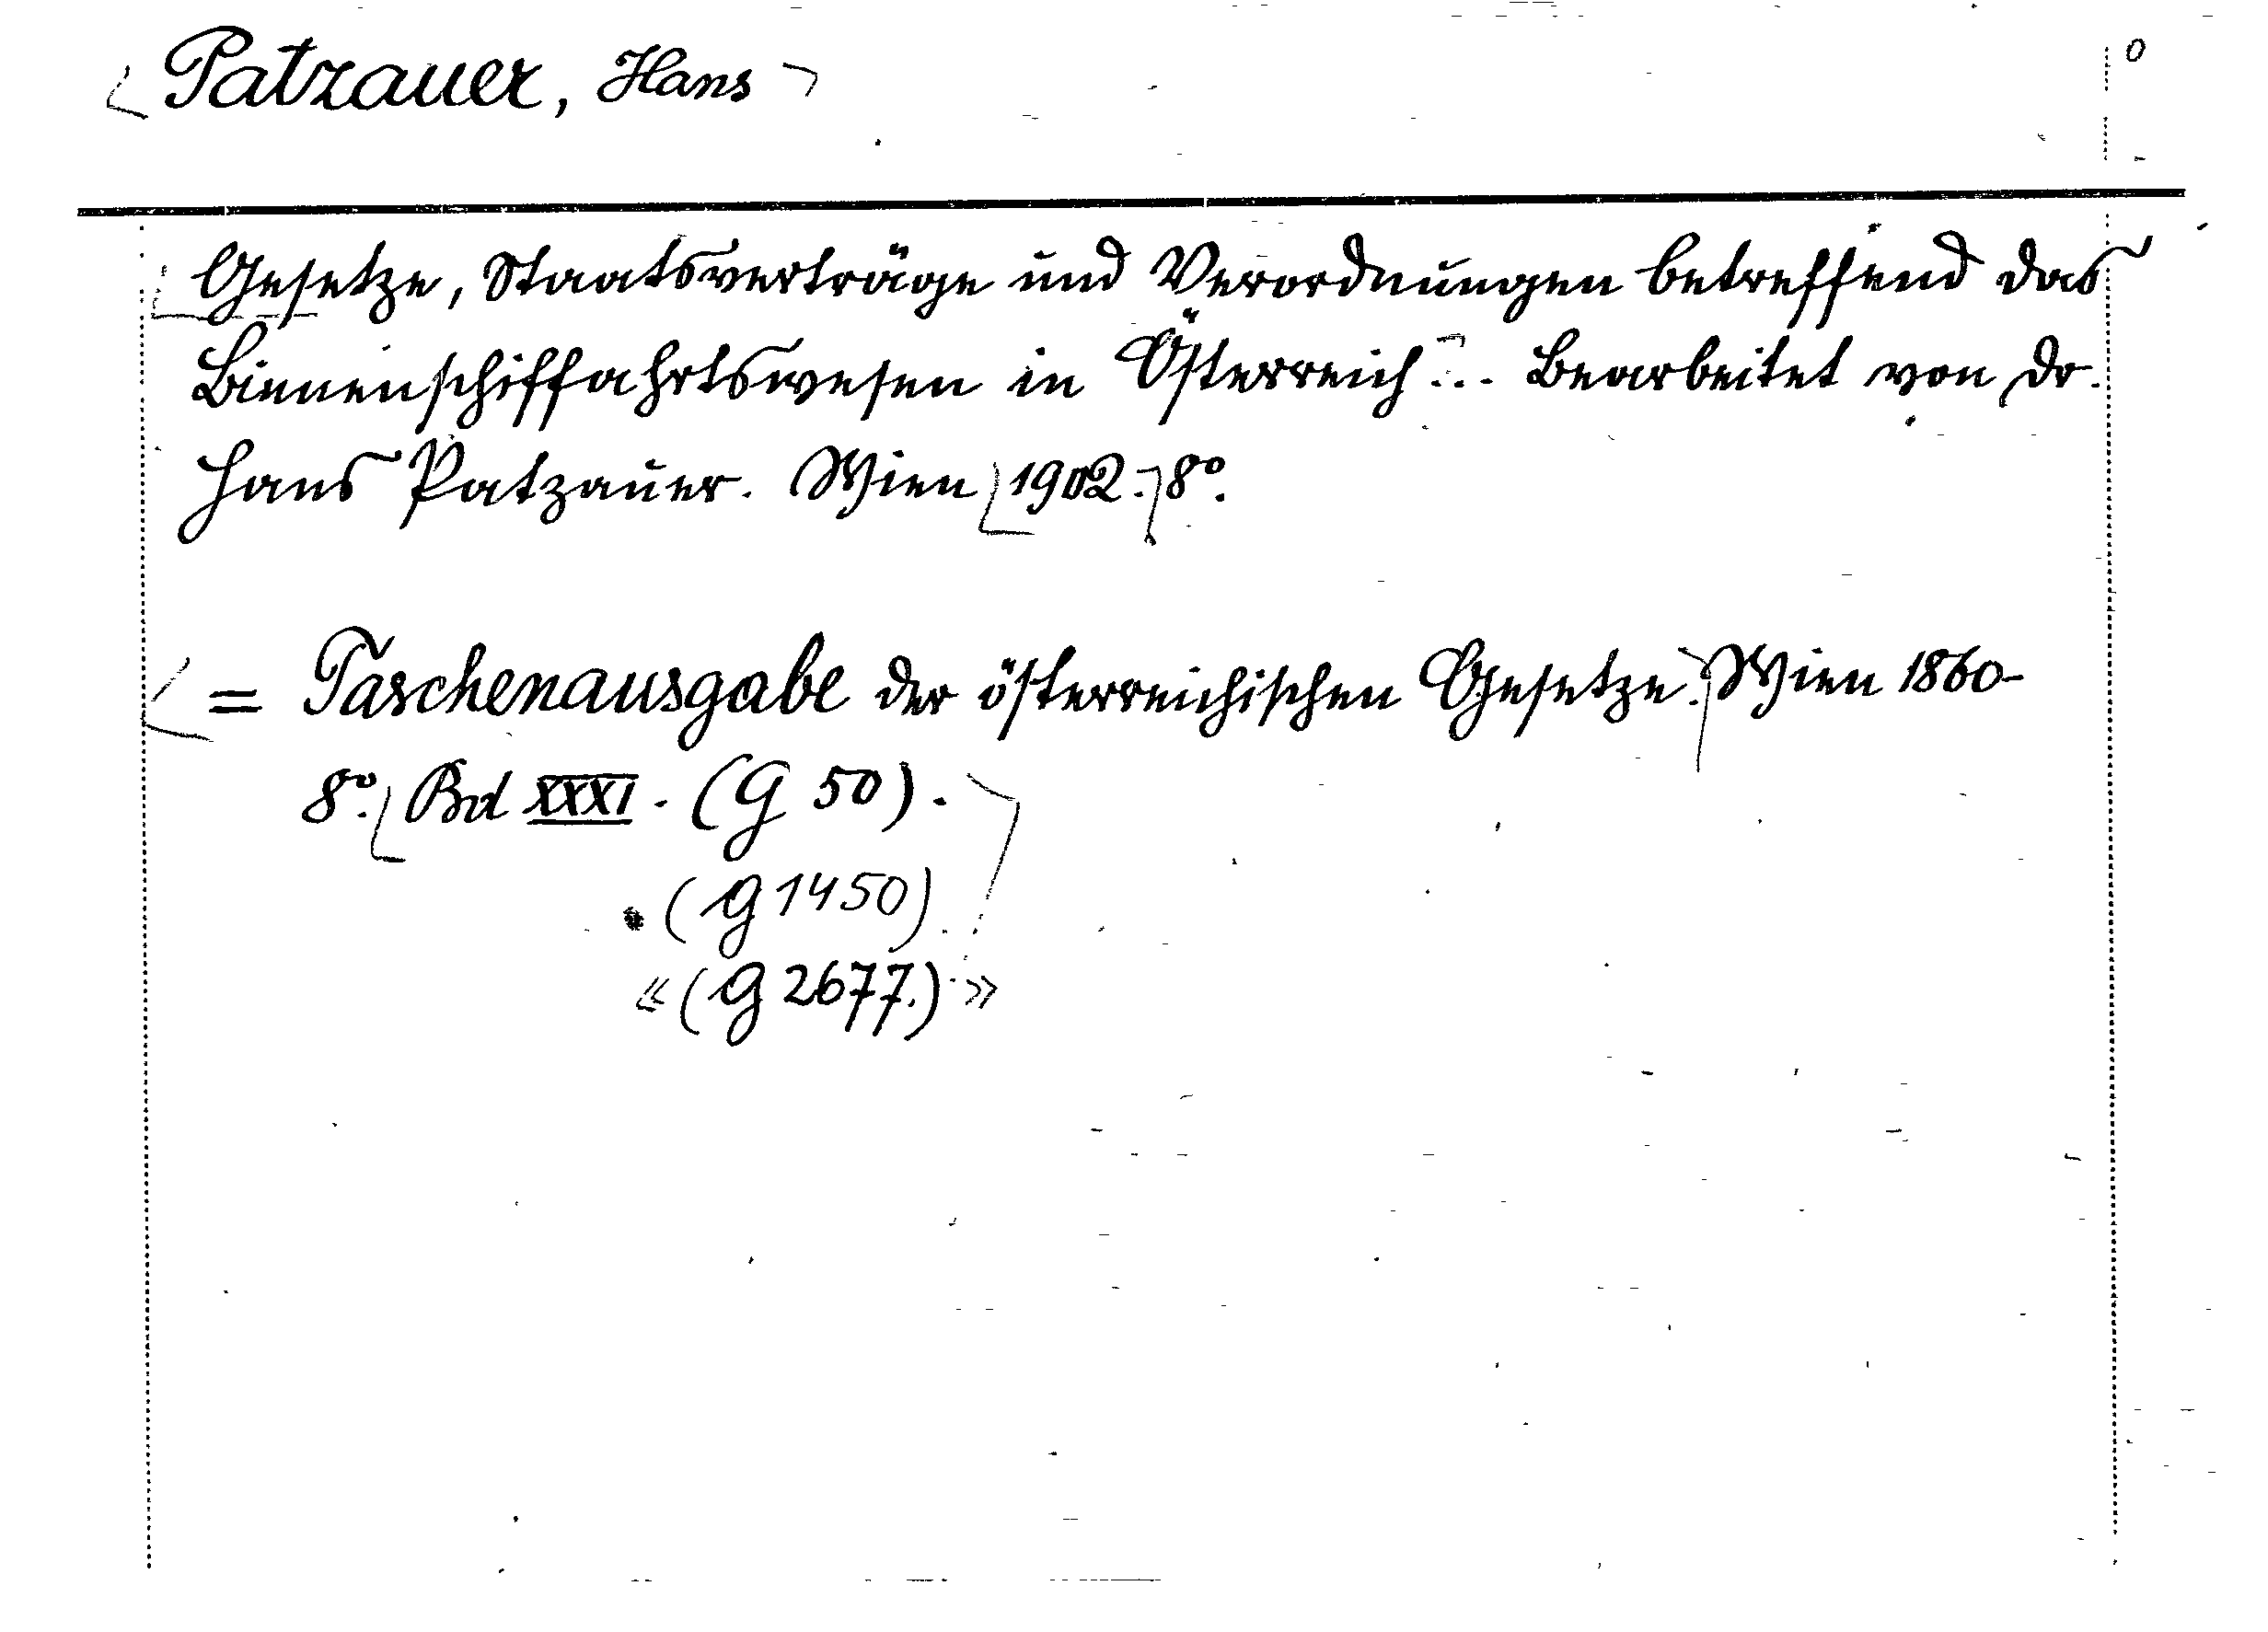 Patzauer, Hans
o
Gesetze, Staatsverträge und Verordnungen betreffend das
Binnenschiffahrtswesen in Österreich... Bearbeitet von Dr.
Hans Patzauer. Wien 1902. 8°.
= Taschenausgabe der österreichischen Gesetze. Wien 1860-
8°. Bd XXXI. (G 50).
(G 1450)
«(G 2677.)»